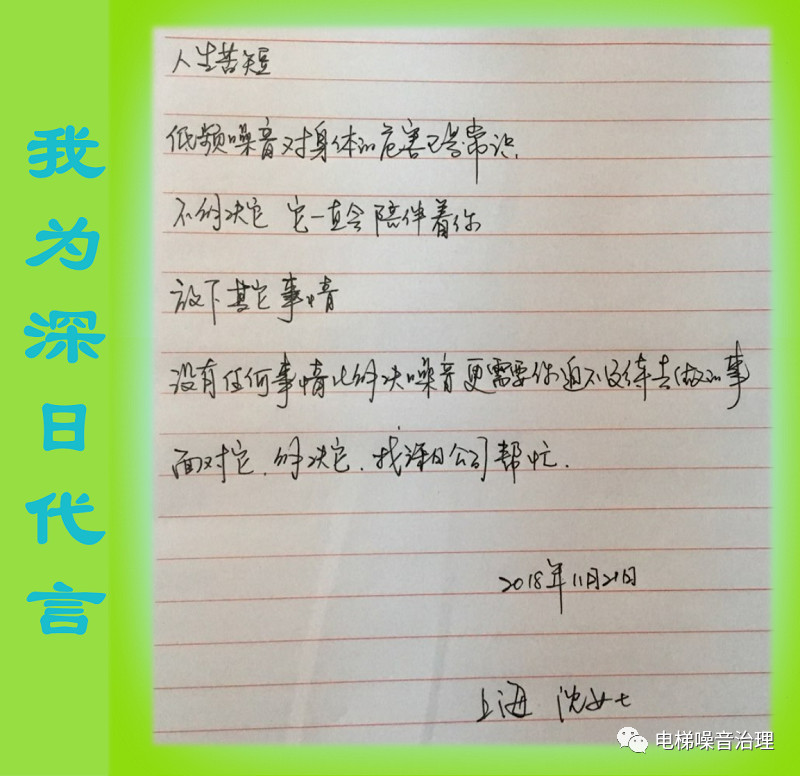 我为深日代言
人生苦短
低频噪音对身体的危害已是常识.
不解决它 它一直会陪伴着你
放下其它事情
没有任何事情比解决噪音更需要你迫不及待去做的事
面对它.解决它.找深日公司帮忙.
2018年11月21日
上海 沈女士
电梯噪音治理